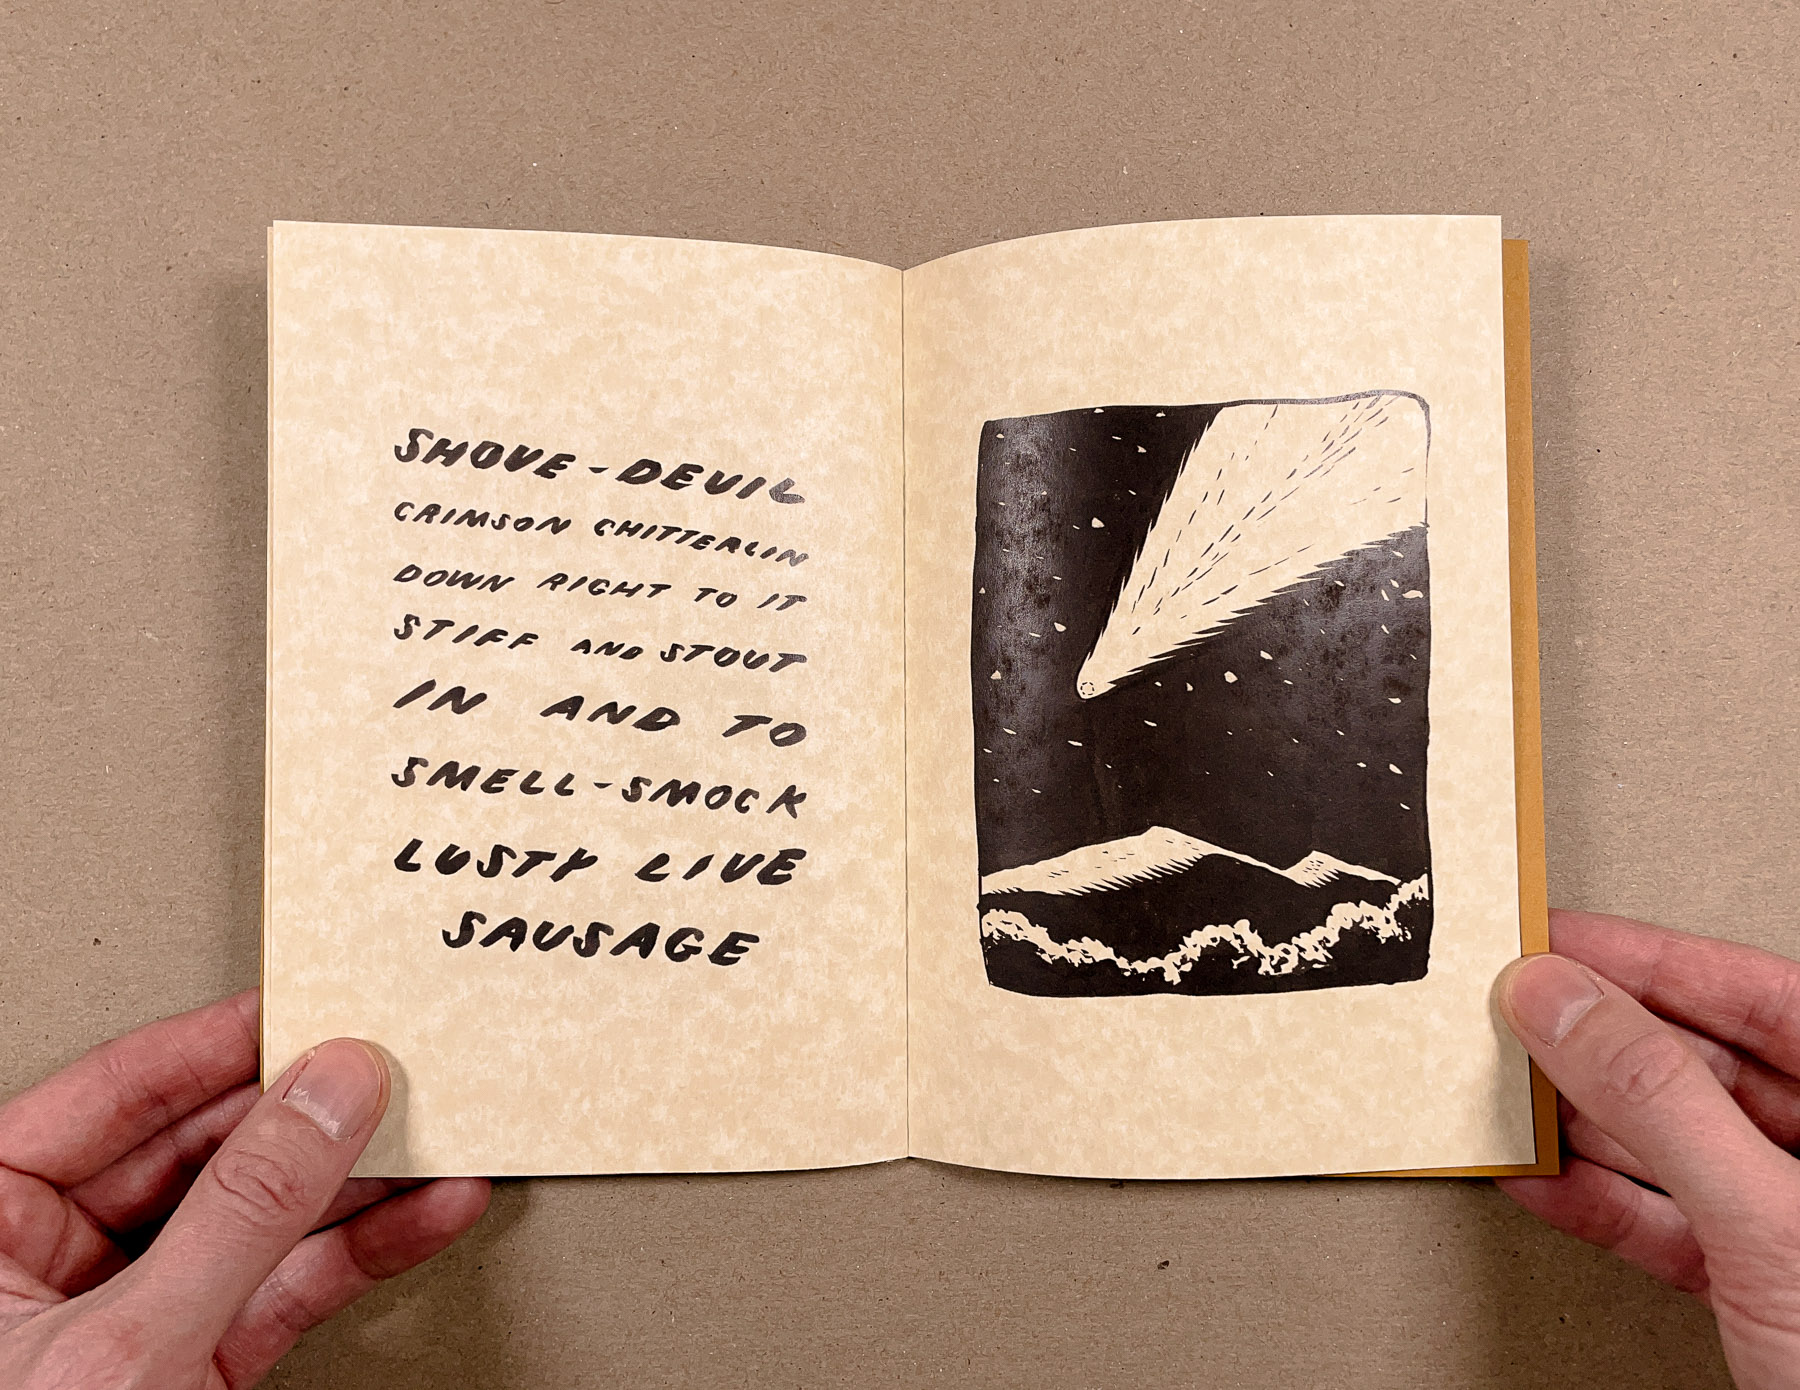 SHOVE-DEVIL
CRIMSON CHITTERLIN
DOWN RIGHT TO IT
STIFF AND STOUT
IN AND TO
SMELL-SMOCK
LUSTY LIVE
SAUSAGE